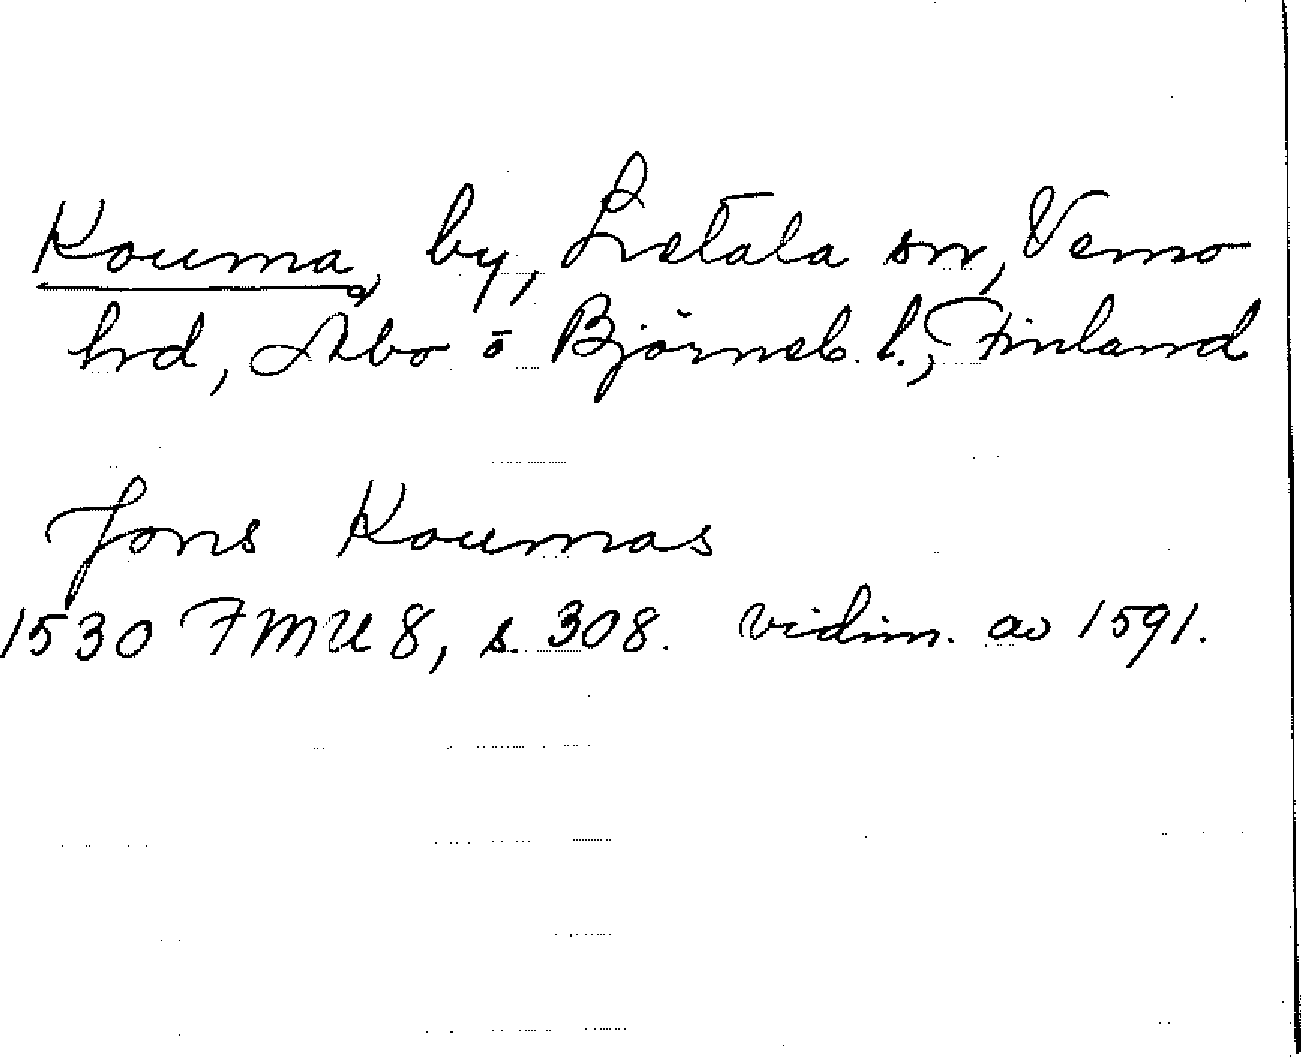 Kouma, by, Letala sn, Vemo
hd, Åbo o Björneb. l., Finland
Jons Koumas
1530 FMU 8, s. 308. vidim. av 1591.